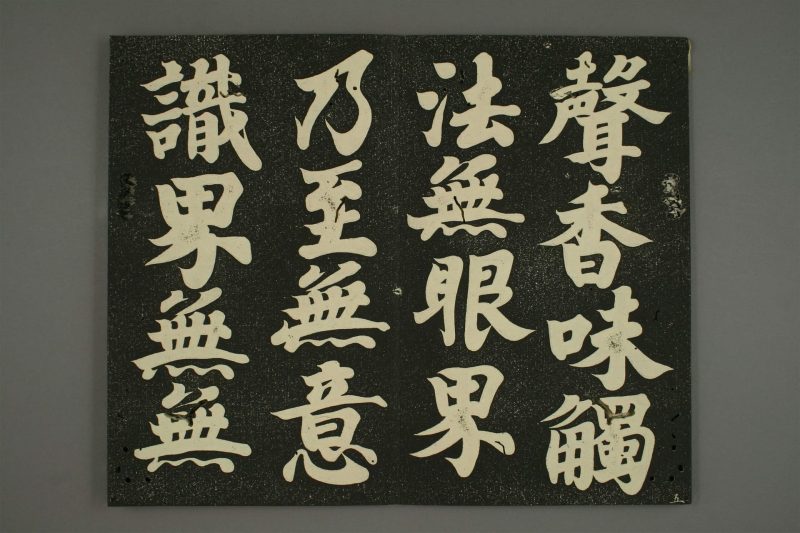 聲香味觸
法無眼界
乃至無意
識界無無
五